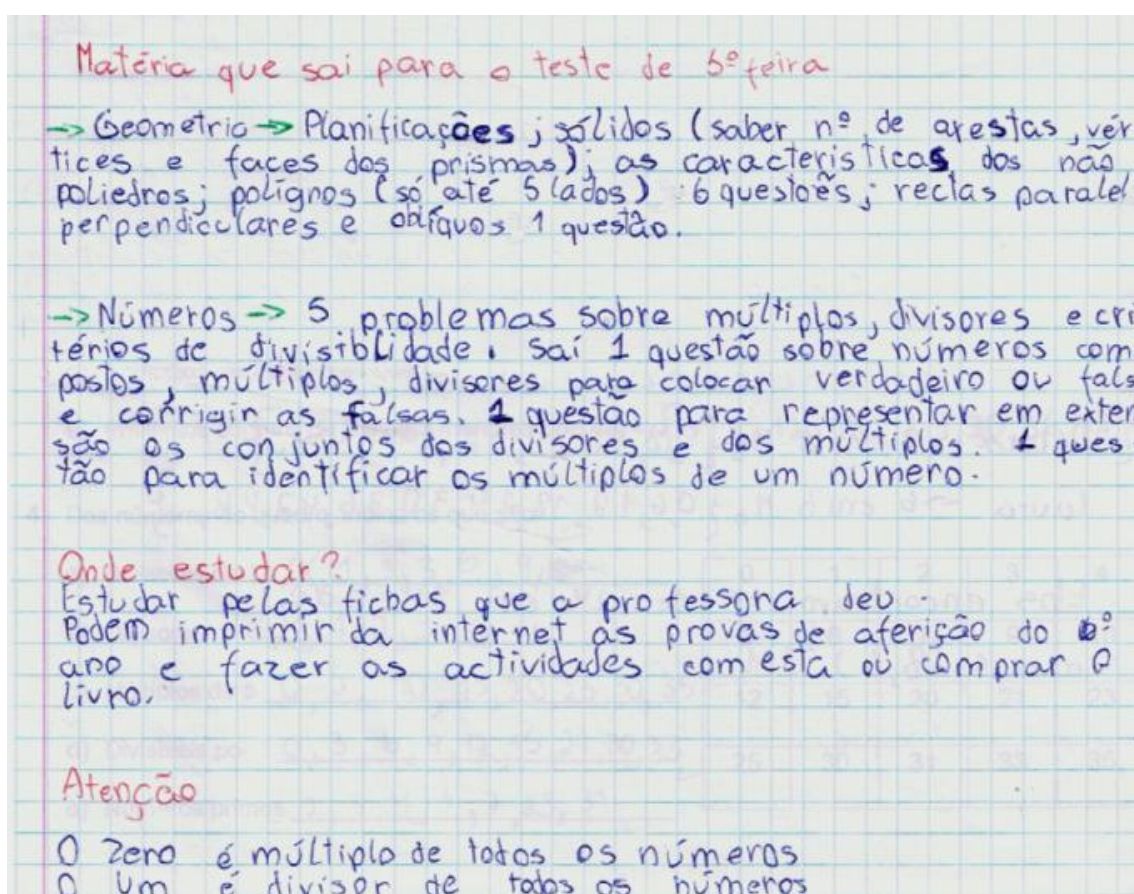 Matéria que sai para o teste de 5ª feira
-> Geometria -> Planificações ; sólidos (saber nº de arestas, vér
tices e faces dos prismas); as caracteristicas dos não
poliedros; polígnos (só até 5 lados) : 6 questoẽs; rectas paralel
perpendiculares e obíquos 1 questão.
-> Números -> 5 problemas sobre múltiplos, divisores e cri
térios de divisiblidade. Saí 1 questão sobre números com
postos, múltiplos, divisores para colocar verdadeiro ou fals
e corrigir as falsas. 1 questão para representar em exten
são os conjuntos dos divisores e dos múltiplos. 1 ques
tão para identificar os múltiplos de um número.
Onde estudar?
Estudar pelas fichas que a professora deu.
Podem imprimir da internet as provas de aferição do 6º
ano e fazer as actividades com esta ou comprar o
livro.
Atenção
O Zero é múltiplo de todos os números
O Um é divisor de todos os números